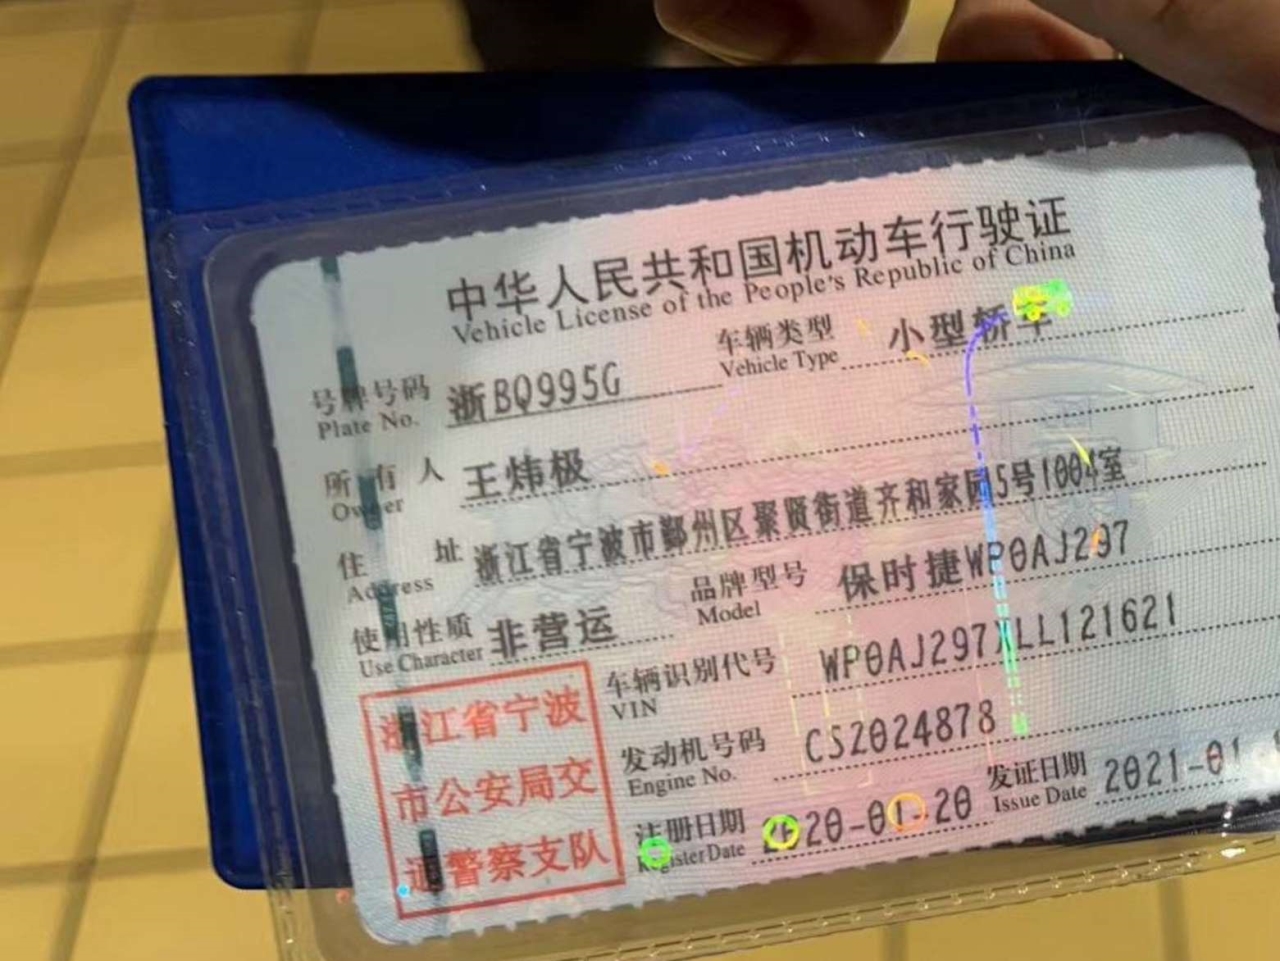 中华人民共和国机动车行驶证
Vehicle License of the People's Republic of China
号牌号码 浙BQ995G 车辆类型 小型轿车
Plate No. Vehicle Type
所有人 王炜极
Owner
住址 浙江省宁波市鄞州区聚贤街道齐和家园5号1004室
Address
使用性质 非营运 品牌型号 保时捷WP0AJ297
Use Character Model
车辆识别代号 WP0AJ297XLL121621
VIN
发动机号码 CS2024878
Engine No.
注册日期 2020-01-20 发证日期 2021-01
Register Date Issue Date
浙江省宁波
市公安局交
通警察支队